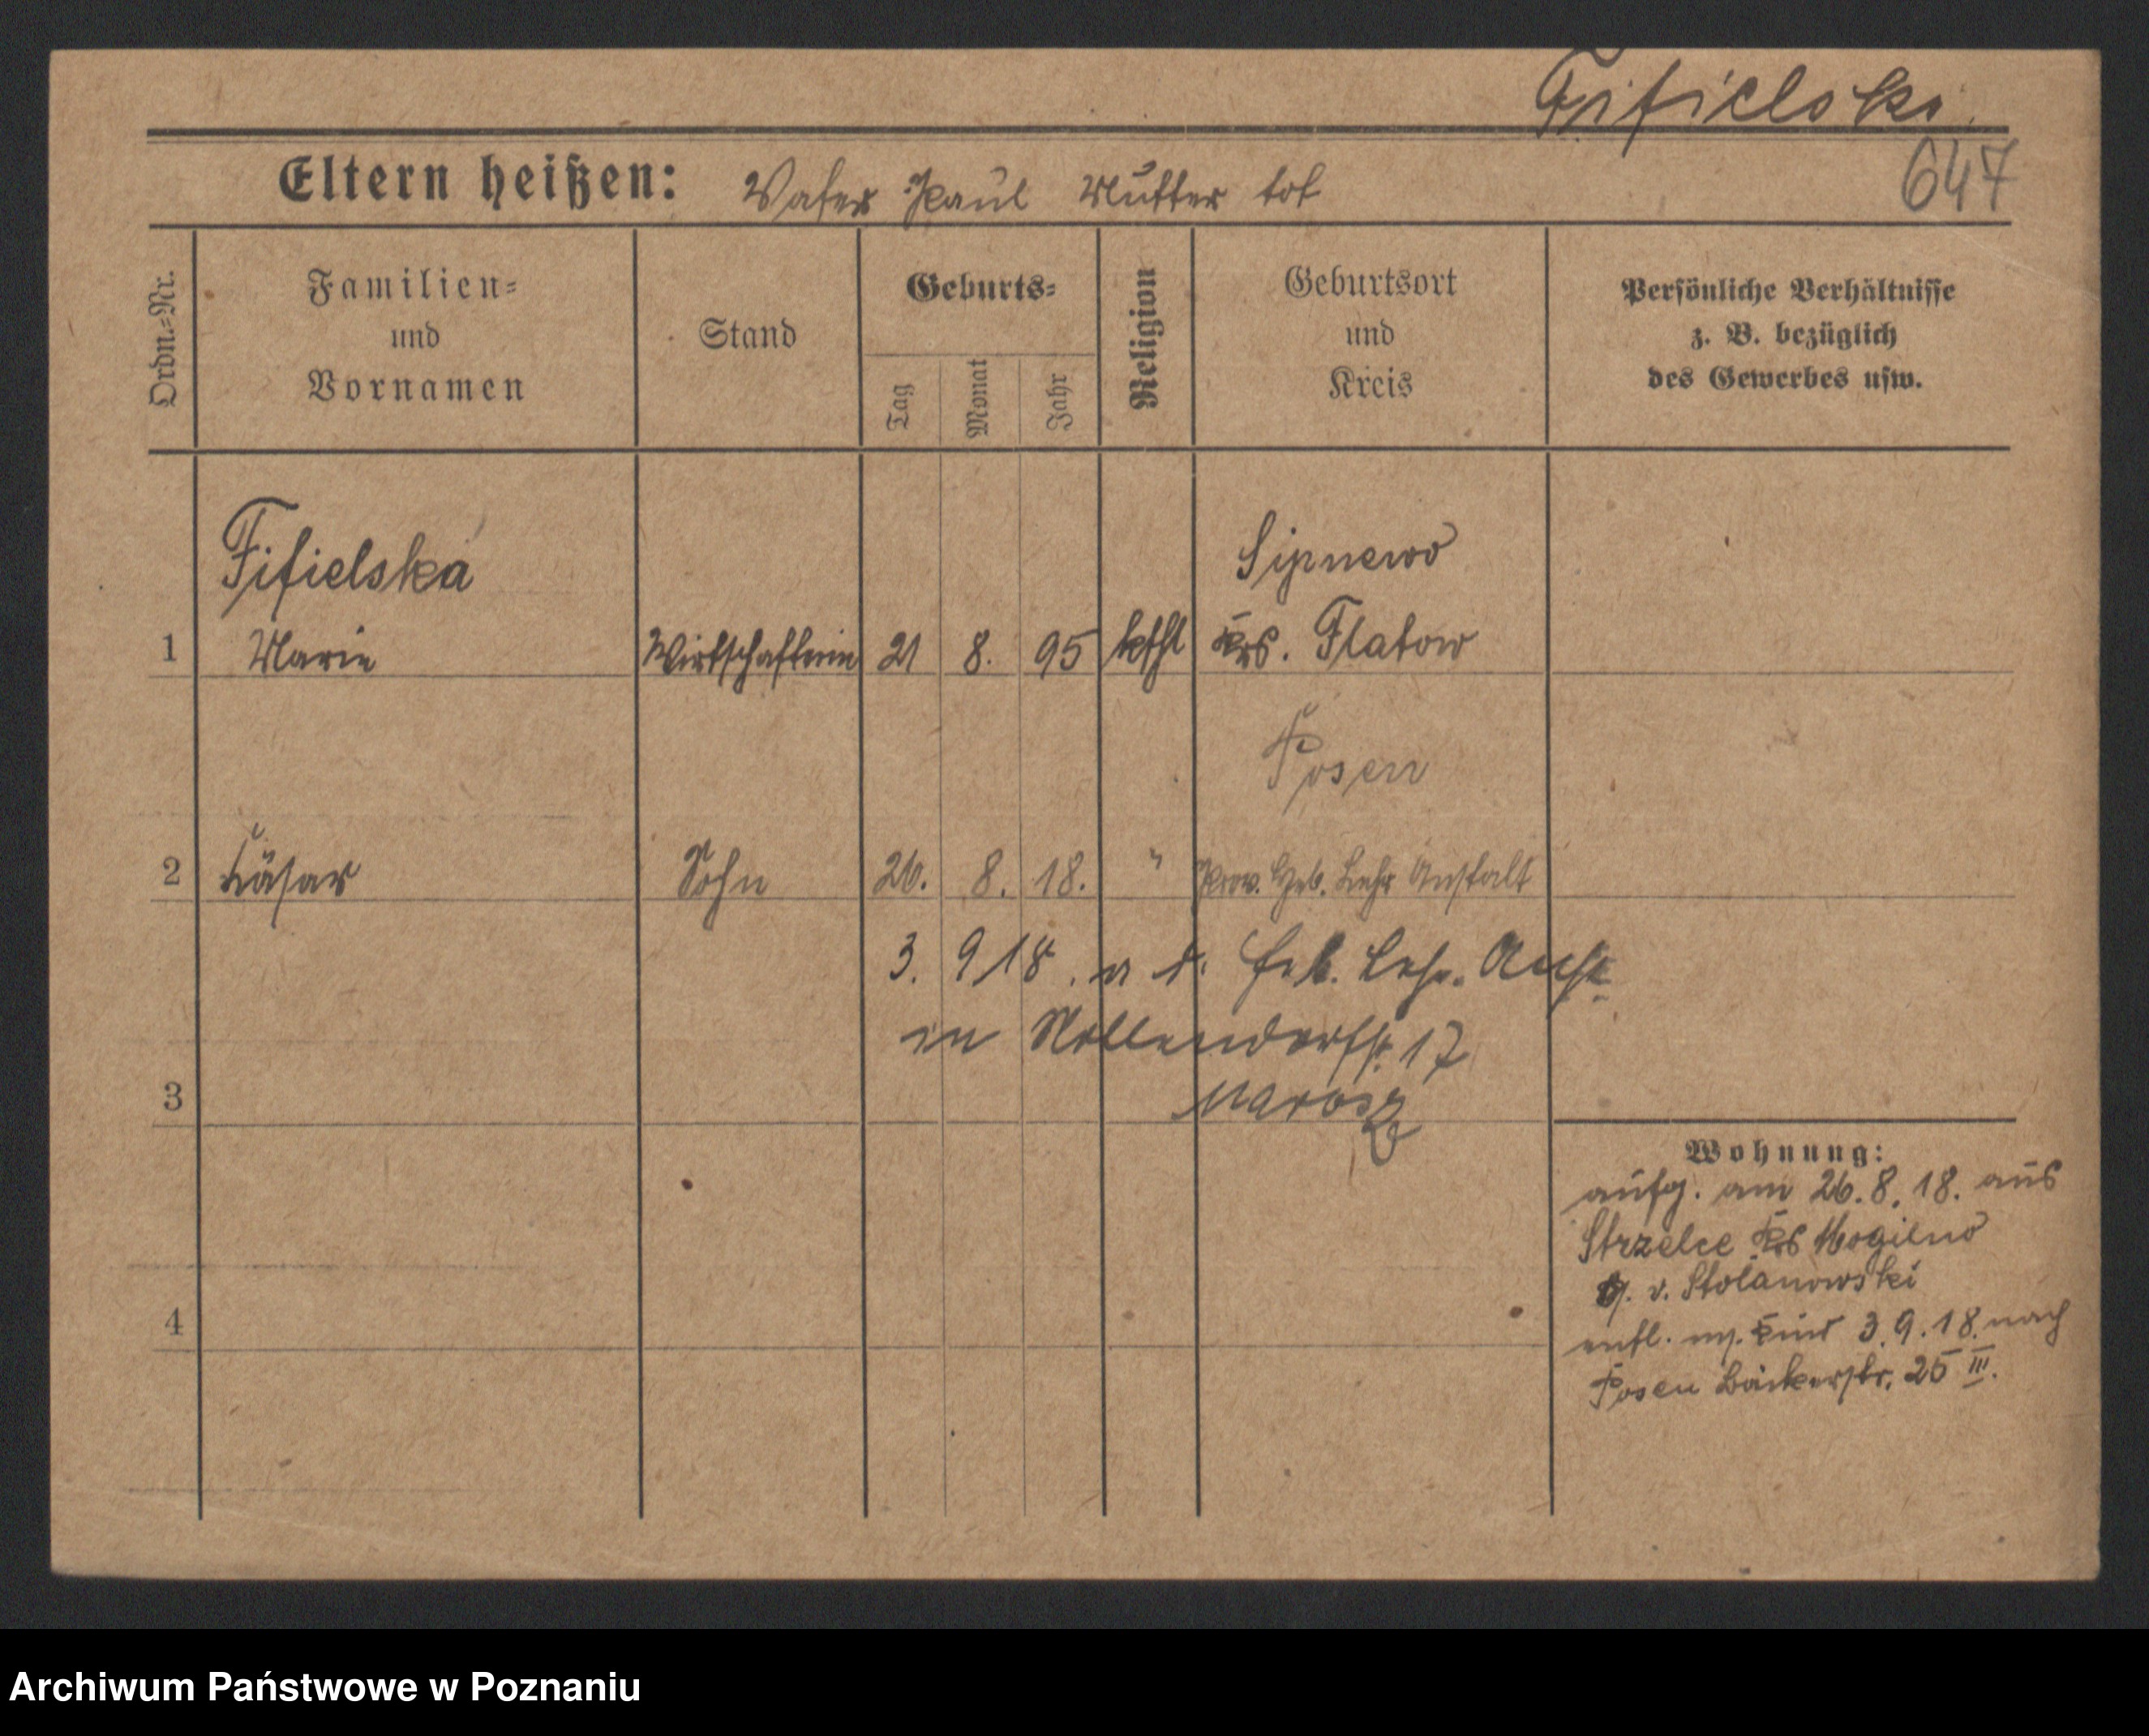 Fifielska
647
Eltern heißen: Vater Paul Mutter tot
Ordn.-Nr.
Familien- und Vornamen
Stand
Geburts-
Tag
Monat
Jahr
Religion
Geburtsort und Kreis
Persönliche Verhältnisse
z. B. bezüglich
des Gewerbes usw.
Fifielska
Sipnewo
1 Marie Wirtschafterin 21 8. 95 kthl Krs. Flatow
Posen
2 Cäsar Sohn 26. 8. 18. " Prov. Heb. Lehr Anstalt
3. 9 18. a d. Heb. Lehr. Anst.
in Nollendorfstr. 17
3 Marosz
Wohnung:
aufg. am 26.8.18. aus
Strzelce Krs Mogilno
v. Stolanowski
4
entl. m. Kind 3.9.18. nach
Posen Bäckerstr. 25 III.
Archiwum Państwowe w Poznaniu